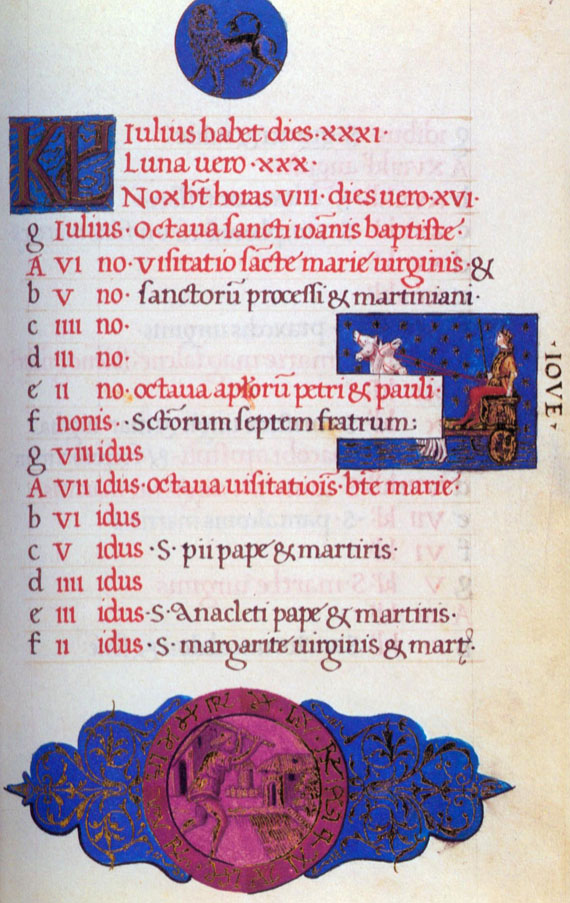 KL Iulius habet dies·xxxi·
Luna uero·xxx·
Nox bt̄ horas VIII· dies uero·xvi·
g Iulius· Octaua sancti ioānis baptiste·
A VI no·Visitatio sāctę marię uirginis·&
b V no· sanctorū processi & martiniani·
c IIII no·
d III no·
e II no·octaua aplōrū petri & pauli·
f nonis··Sctōrum septem fratrum:
g VIII idus
A VII idus·octaua uisitatiōis·btę marię·
b VI idus
c V idus·S· pii papę & martiris·
d IIII idus
e III idus·S·Anacleti papę & martiris·
f II idus·S·margaritę uirginis & mart·
·IOVE·